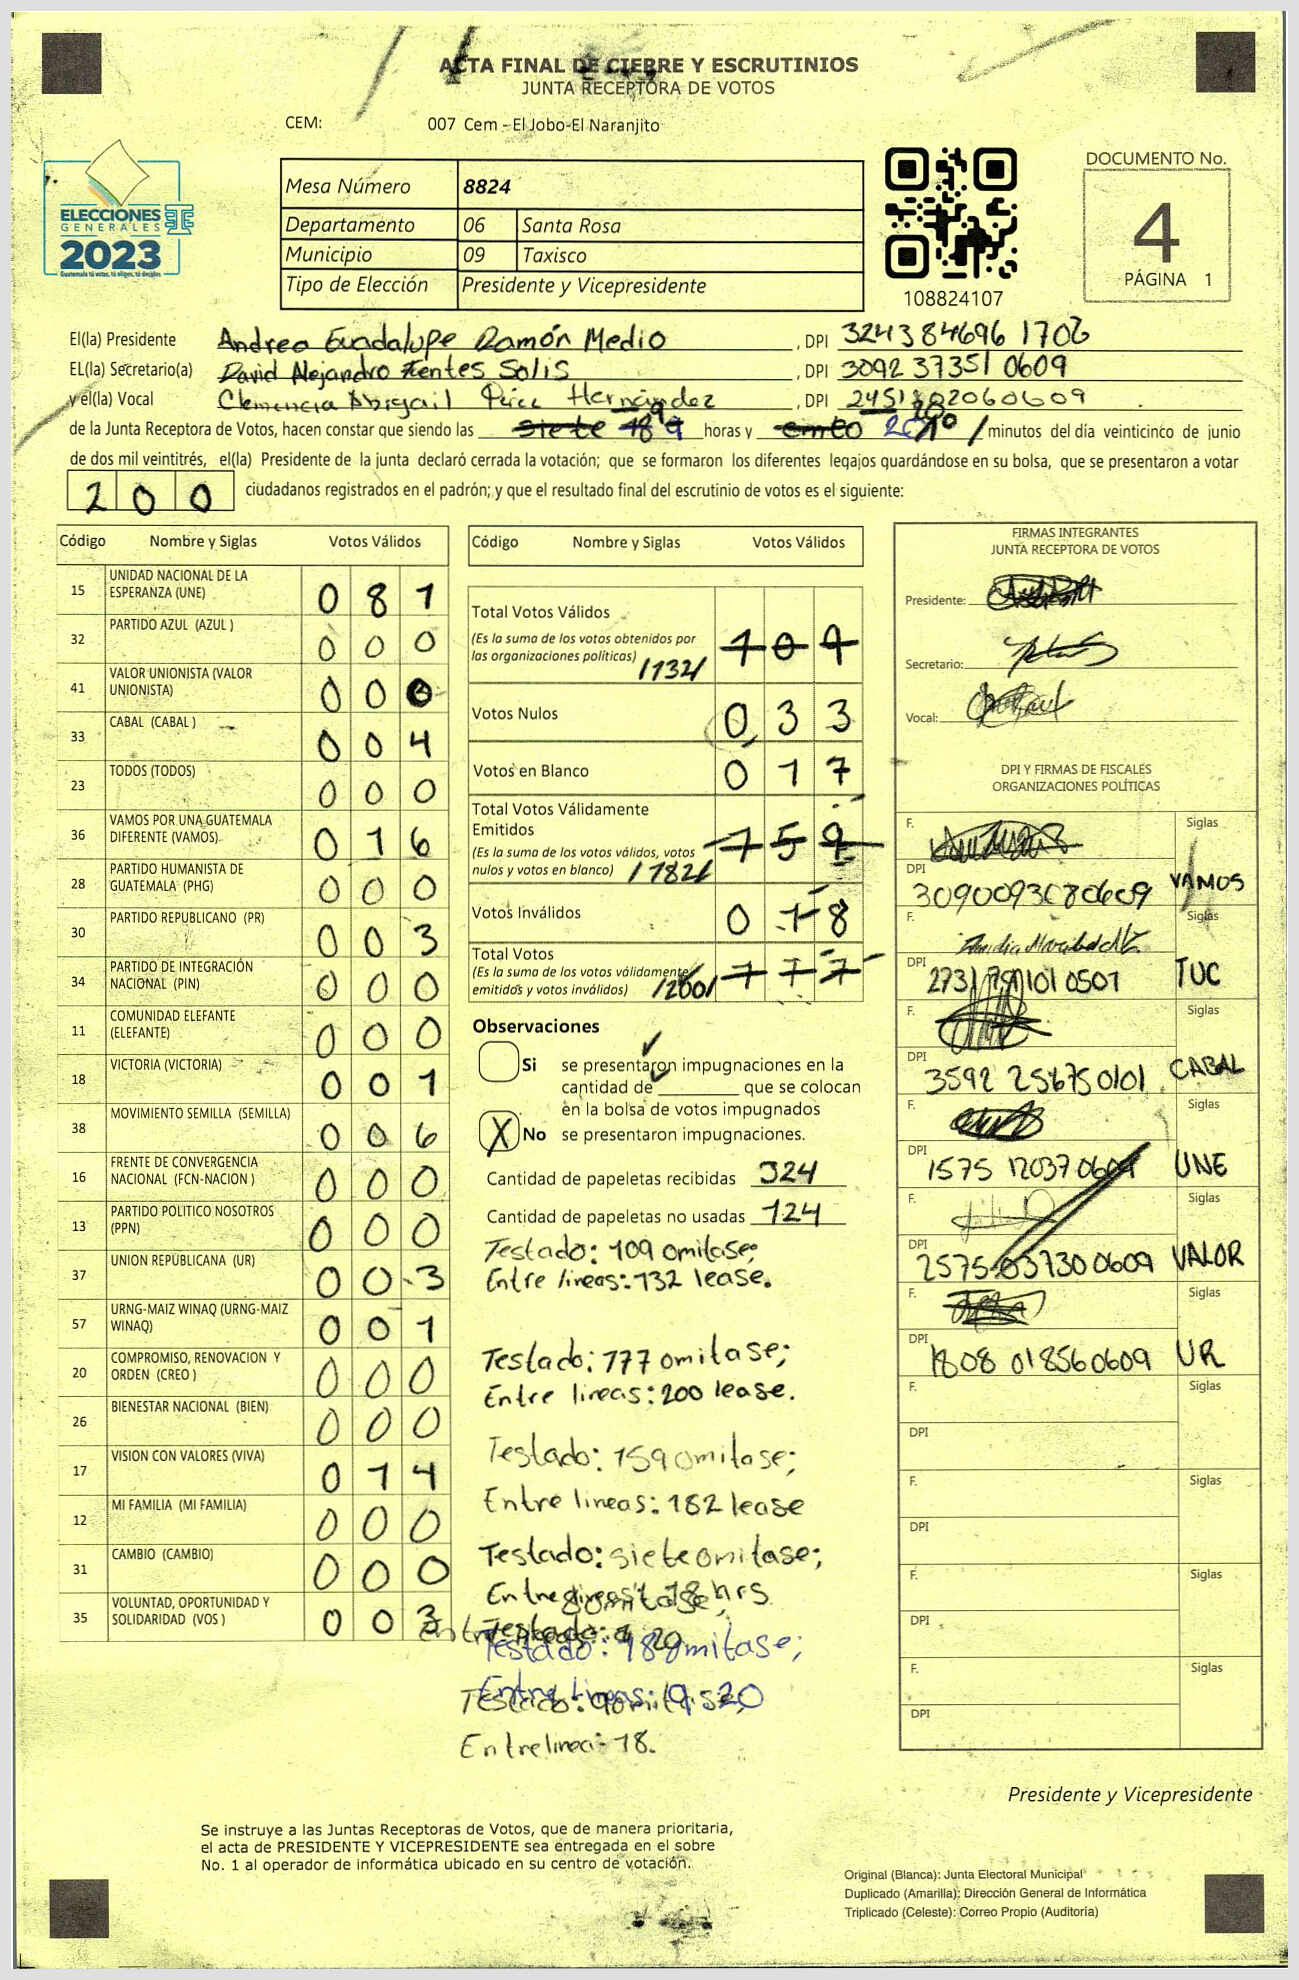 ACTA FINAL DE CIERRE Y ESCRUTINIOS
JUNTA RECEPTORA DE VOTOS
CEM: 007 Cem - El Jobo-El Naranjito
ELECCIONES
GENERALES
2023
Guatemala tú votas, tú eliges, tú decides
Mesa Número 8824
Departamento 06 Santa Rosa
Municipio 09 Taxisco
Tipo de Elección Presidente y Vicepresidente
108824107
DOCUMENTO No.
4
PÁGINA 1
El(la) Presidente Andrea Guadalupe Ramón Medio, DPI 324384696 1706
EL(la) Secretario(a) David Alejandro Fentes Solis, DPI 3092 37351 0609
y el(la) Vocal Clemencia Abigail Hernández, DPI
de la Junta Receptora de Votos, hacen constar que siendo las siete 18 9 horas y minutos del día veinticinco de junio
de dos mil veintitrés, el(la) Presidente de la junta declaró cerrada la votación; que se formaron los diferentes legajos guardándose en su bolsa, que se presentaron a votar
200 ciudadanos registrados en el padrón; y que el resultado final del escrutinio de votos es el siguiente:
Código Nombre y Siglas Votos Válidos
15 UNIDAD NACIONAL DE LA ESPERANZA (UNE) 0 8 1
32 PARTIDO AZUL (AZUL ) 0 0 0
41 VALOR UNIONISTA (VALOR UNIONISTA) 0 0 0
33 CABAL (CABAL ) 0 0 4
23 TODOS (TODOS) 0 0 0
36 VAMOS POR UNA GUATEMALA DIFERENTE (VAMOS) 0 1 6
28 PARTIDO HUMANISTA DE GUATEMALA (PHG) 0 0 0
30 PARTIDO REPUBLICANO (PR) 0 0 3
34 PARTIDO DE INTEGRACIÓN NACIONAL (PIN) 0 0 0
11 COMUNIDAD ELEFANTE (ELEFANTE) 0 0 0
18 VICTORIA (VICTORIA) 0 0 1
38 MOVIMIENTO SEMILLA (SEMILLA) 0 0 6
16 FRENTE DE CONVERGENCIA NACIONAL (FCN-NACION ) 0 0 0
13 PARTIDO POLITICO NOSOTROS (PPN) 0 0 0
37 UNION REPUBLICANA (UR) 0 0 3
57 URNG-MAIZ WINAQ (URNG-MAIZ WINAQ) 0 0 1
20 COMPROMISO, RENOVACION Y ORDEN (CREO ) 0 0 0
26 BIENESTAR NACIONAL (BIEN) 0 0 0
17 VISION CON VALORES (VIVA) 0 1 4
12 MI FAMILIA (MI FAMILIA) 0 0 0
31 CAMBIO (CAMBIO) 0 0 0
35 VOLUNTAD, OPORTUNIDAD Y SOLIDARIDAD (VOS ) 0 0 3
Código Nombre y Siglas Votos Válidos
Total Votos Válidos
(Es la suma de los votos obtenidos por
las organizaciones políticas) /132/ 1 0 9
Votos Nulos 0 3 3
Votos en Blanco 0 1 7
Total Votos Válidamente
Emitidos
(Es la suma de los votos válidos, votos
nulos y votos en blanco) /182/ 1 5 9
Votos Inválidos 0 1 8
Total Votos
(Es la suma de los votos válidamente
emitidos y votos inválidos) /200/ 1 7 7
Observaciones
Si se presentaron impugnaciones en la
cantidad de ________ que se colocan
en la bolsa de votos impugnados
X No se presentaron impugnaciones.
Cantidad de papeletas recibidas 324
Cantidad de papeletas no usadas 124
Testado: 109 omitase;
Entre lineas: 132 lease.
Testado: 177 omitase;
Entre lineas: 200 lease.
Testado: 159 omitase;
Entre lineas: 182 lease
Testado: siete omitase;
Testado: 18 omitase;
Entre lineas: 9 20
Entrelinea- 18.
FIRMAS INTEGRANTES
JUNTA RECEPTORA DE VOTOS
Presidente:
Secretario:
Vocal:
DPI Y FIRMAS DE FISCALES
ORGANIZACIONES POLÍTICAS
F. Siglas
DPI 3090093080609 VAMOS
F. Siglas
DPI 2731 101 0507 TUC
F. Siglas
DPI 3592 25675 0101 CABAL
F. Siglas
DPI 1575 12037 0609 UNE
F. Siglas
DPI 2575 03730 0609 VALOR
F. Siglas
DPI 1808 01856 0609 UR
F. Siglas
DPI
F. Siglas
DPI
F. Siglas
DPI
F. Siglas
DPI
Presidente y Vicepresidente
Se instruye a las Juntas Receptoras de Votos, que de manera prioritaria,
el acta de PRESIDENTE Y VICEPRESIDENTE sea entregada en el sobre
No. 1 al operador de informática ubicado en su centro de votación.
Original (Blanca): Junta Electoral Municipal
Duplicado (Amarilla): Dirección General de Informática
Triplicado (Celeste): Correo Propio (Auditoría)